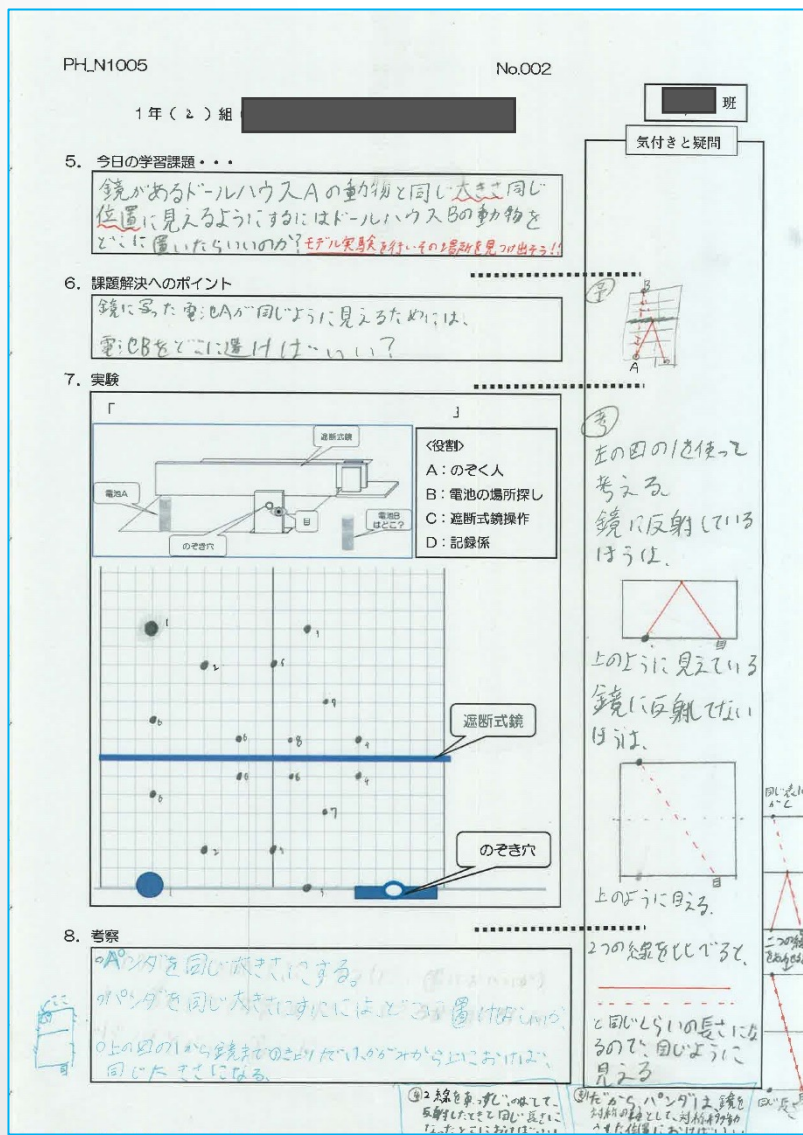 PH_N1005
No.002
1年(2)組
班
気付きと疑問
5. 今日の学習課題・・・
鏡があるドールハウスAの動物と同じ大きさ同じ
位置に見えるようにするにはドールハウスBの動物を
どこに置いたらいいのか?モデル実験を行いその場所を見つけ出そう!!
6. 課題解決へのポイント
鏡に写った電池Aが同じように見えるためには、
電池Bをどこに置けばいい?
7. 実験
「 」
遮断式鏡
電池A
目
のぞき穴
電池B
はどこ?
<役割>
A:のぞく人
B:電池の場所探し
C:遮断式鏡操作
D:記録係
遮断式鏡
のぞき穴
8. 考察
○パンダを同じ大きさにする。
○パンダを同じ大きさにするにはどこに置けばいいか、
○上の図の1から鏡までのきょりだけ、かがみから上におけば、
同じ大きさになる。
B
A
考
左の図の1を使って
考える。
鏡に反射している
ほうは、
目
上のように見えている
鏡に反射してない
ほうは、
目
上のように見える。
2つの線を比べると、
と同じくらいの長さにな
るので、同じように
見える
④2線を真っすぐのばして、
反射したときと同じ長さに
なったとこにおけばいい
だから、パンダは、鏡を
対称の軸として、対称移動